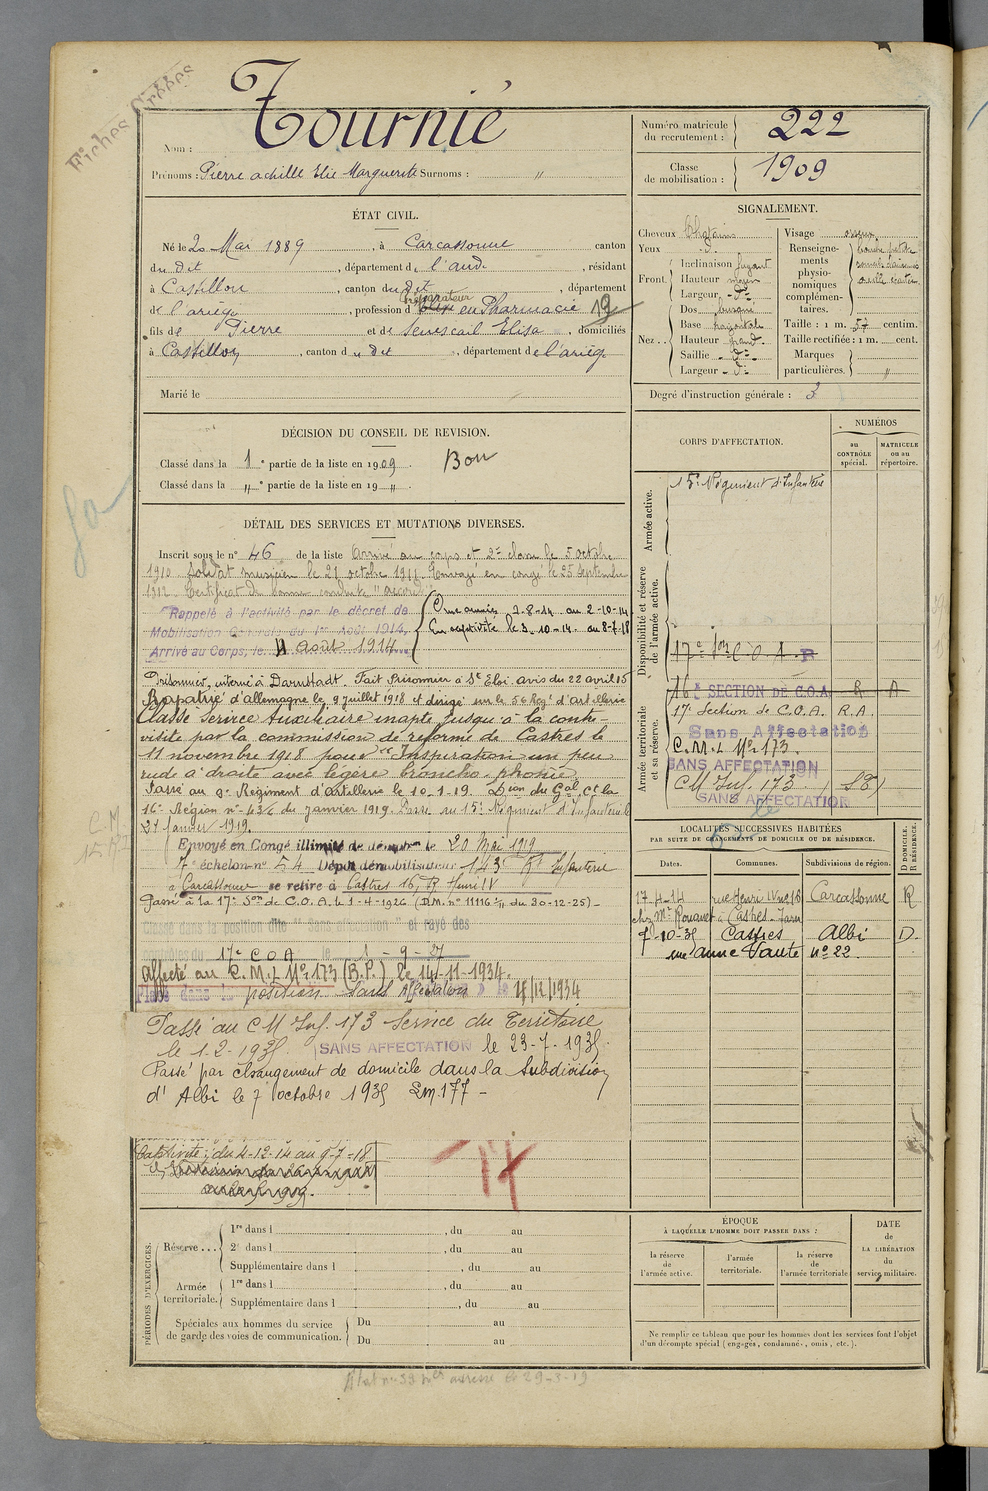 Fiches Créées
Tournié
Nom :
Prénoms : Pierre Achille Elie Marguerite Surnoms : "
Numéro matricule du recrutement : 222
Classe de mobilisation : 1909
ÉTAT CIVIL.
Né le 20 Mai 1889, à Carcassonne canton
du dit, département de l'aude, résidant
à Castillon, canton du dit, département
de l'ariège, profession de préparateur en Pharmacie 12
fils de Pierre et de Senescail Elisa, domiciliés
à Castillon, canton du dit, département de l'ariège
Marié le
DÉCISION DU CONSEIL DE REVISION.
Classé dans la 1e partie de la liste en 1909. Bon
Classé dans la " e partie de la liste en 19 ".
DÉTAIL DES SERVICES ET MUTATIONS DIVERSES.
Inscrit sous le n° 46 de la liste Arrivé au corps et 2e classe le 5 octobre
1910. Soldat musicien le 21 octobre 1911. Envoyé en congé le 25 septembre
1912. Certificat de bonne conduite "accordé"
Rappelé à l'activité par le décret de
Mobilisation Générale du 1er Août 1914,
Arrivé au Corps, le 4 Août 1914
Aux armées 2-8-14 au 2-10-14
En captivité le 3-10-14 au 8-7-18
Prisonnier, interné à Darmstadt. Fait Prisonnier à St Eloi avis du 22 avril 15
Rapatrié d'allemagne le 9 juillet 1918 et dirigé sur le 56 Reg t d'artillerie
Classé Service Auxiliaire inapte jusqu'à la contre-
visite par la commission de réforme de Castres le
11 novembre 1918 pour "Inspiration un peu
rude à droite avec légère broncho-phonie
Passé au 9e Régiment d'artillerie le 10-1-19. Don du Gal Ct la
16e Région n° 436 du janvier 1919. Passé au 15e Régiment d'Infanterie le
21 janvier 1919.
Envoyé en Congé illimité de démobon le 20 Mai 1919
7e échelon n° 54 Dépôt démobilisateur 143e Rt Infanterie
à Carcassonne se retire à Castres 16, R. Henri IV
Passé à la 17e Son de C.O.A. le 1-4-1926 (D.M. n° 11116 du 30-12-25)-
Classé dans la position dite "Sans affectation" et rayé des
17e C O A le 1-9-27
Affecté au C.M.I. No 173 (B.P.) le 14-11-1934.
Placé dans la position "Sans Affectation" le 18/12/1934
Passé au C M Inf. 173 Service du Territoire
le 1-2-1935. SANS AFFECTATION le 23-7-1935.
Passé par changement de domicile dans la Subdivision
d'Albi le 7 octobre 1935 Em. 177 -
Captivité: du 4-12-14 au 9-7-18
SIGNALEMENT.
Cheveux Chatains
Yeux d°
Front Inclinaison fuyant
Hauteur moyen
Largeur d°
Nez Dos busqué
Base horizontale
Hauteur grand
Saillie d°
Largeur d°
Visage osseux
Renseignements physionomiques complémentaires.
Taille : 1 m. 57 centim.
Taille rectifiée : 1 m. cent.
Marques particulières. "
Degré d'instruction générale : 3
CORPS D'AFFECTATION.
NUMÉROS
au CONTRÔLE spécial.
MATRICULE ou au répertoire.
Armée active.
15e Régiment d'Infanterie
Disponibilité et réserve de l'armée active.
17e C.O.A. R
Armée territoriale et sa réserve.
16e SECTION de C.O.A. R A
17e Section de C.O.A. R.A.
Sans Affectation
C.M.I. No 173.
SANS AFFECTATION
C M Inf. 173
SANS AFFECTATION
LOCALITÉS SUCCESSIVES HABITÉES
PAR SUITE DE CHANGEMENTS DE DOMICILE OU DE RÉSIDENCE.
D DOMICILE. R RÉSIDENCE.
Dates. Communes. Subdivisions de région.
17-4-14 rue Henri IV n° 16 Carcassonne R
chez Mr Rouanet à Castres - Tarn
7-10-35 Castres Albi D.
rue Anne Vaute n° 22.
PÉRIODES D'EXERCICES.
Réserve...
1re dans l , du au
2e dans l , du au
Supplémentaire dans l , du au
Armée territoriale.
1re dans l , du au
Supplémentaire dans l , du au
Spéciales aux hommes du service de garde des voies de communication.
Du au
Du au
ÉPOQUE
À LAQUELLE L'HOMME DOIT PASSER DANS :
la réserve de l'armée active.
l'armée territoriale.
la réserve de l'armée territoriale
DATE de LA LIBÉRATION du service militaire.
Ne remplir ce tableau que pour les hommes dont les services font l'objet
d'un décompte spécial (engagés, condamnés, omis, etc.).